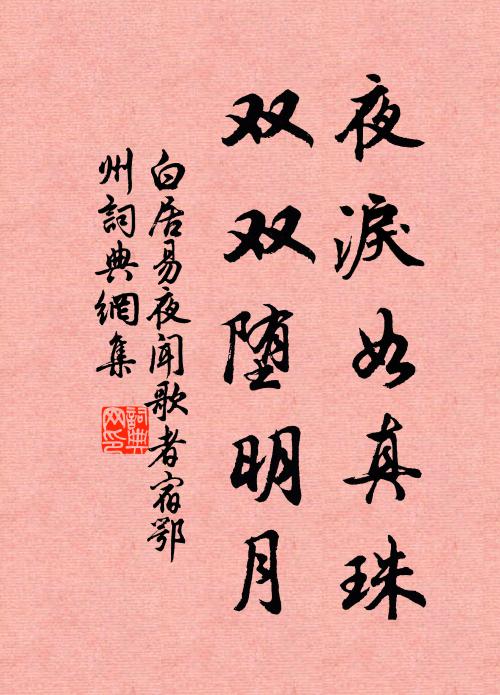 夜淚如真珠
双双堕明月
白居易夜闻歌者宿鄂
州詞典網集
詞典
网印